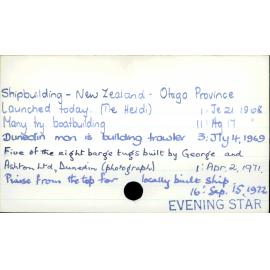 Shipbuilding - New Zealand - Otago Province
Launched today. (Te Heidi) 1: Je 21 1968
Many try boatbuilding 11: Ag 17 "
Dunedin man is building trawler 3: Jly 4, 1969
Five of the eight barge tugs built by George and
Ashton Ltd, Dunedin (photograph) 1: Apr. 2, 1971.
Praise from the top for locally built ship
16: Sep. 15, 1972
EVENING STAR